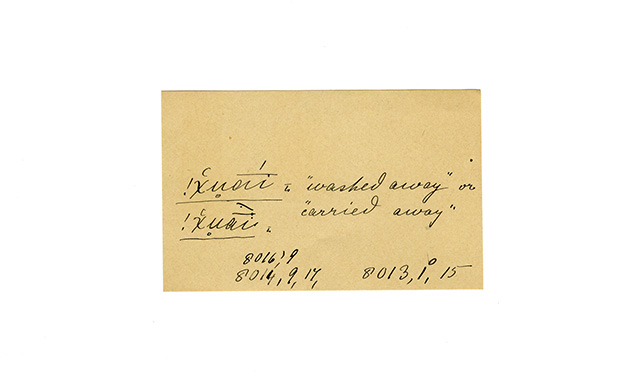 !χ̆ṷāí = "washed away" or
!χ̆ṷāí " "carried away"
8016, 9
8014, 9, 17, 8013, 1, 15